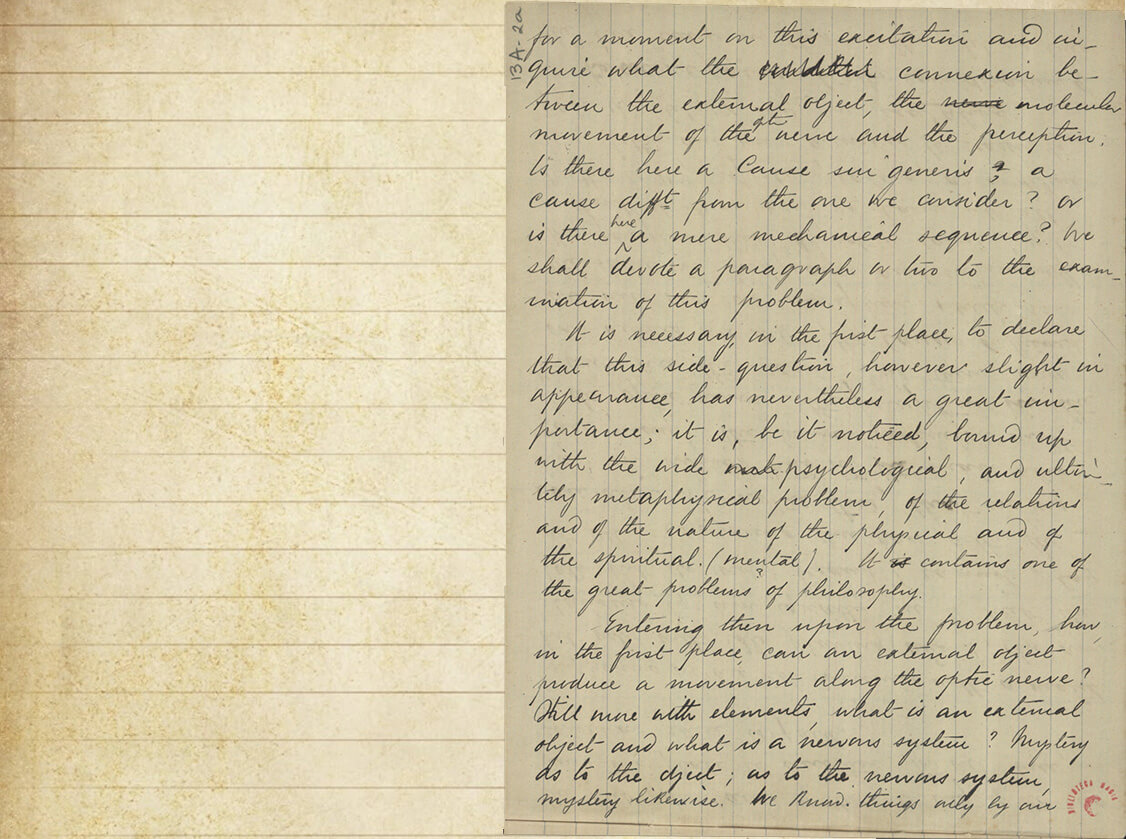 13A-2a
for a moment on this excitation and in-
quire what the connexion be-
tween the external object, the nerve molecular
movement of the opt. nerve and the perception.
Is there here a Cause sui generis, a
cause difft from the one we consider? or
is there here a mere mechanical sequence? We
shall devote a paragraph or two to the exam-
ination of this problem.
It is necessary, in the first place, to declare
that this side-question, however slight in
appearance, has nevertheless a great im-
portance; it is, be it noticed, bound up
with the wide psychological, and ultim-
tely metaphysical problem, of the relations
and of the nature of the physical and of
the spiritual. (mental). It is contains one of
the great problems of philosophy.
?
Entering then upon the problem, how,
in the first place, can an external object
produce a movement along the optic nerve?
Still more with elements, what is an external
object and what is a nervous system? Mystery
as to the object; as to the nervous system,
mystery likewise. We know things only by our
BIBLIOTECA